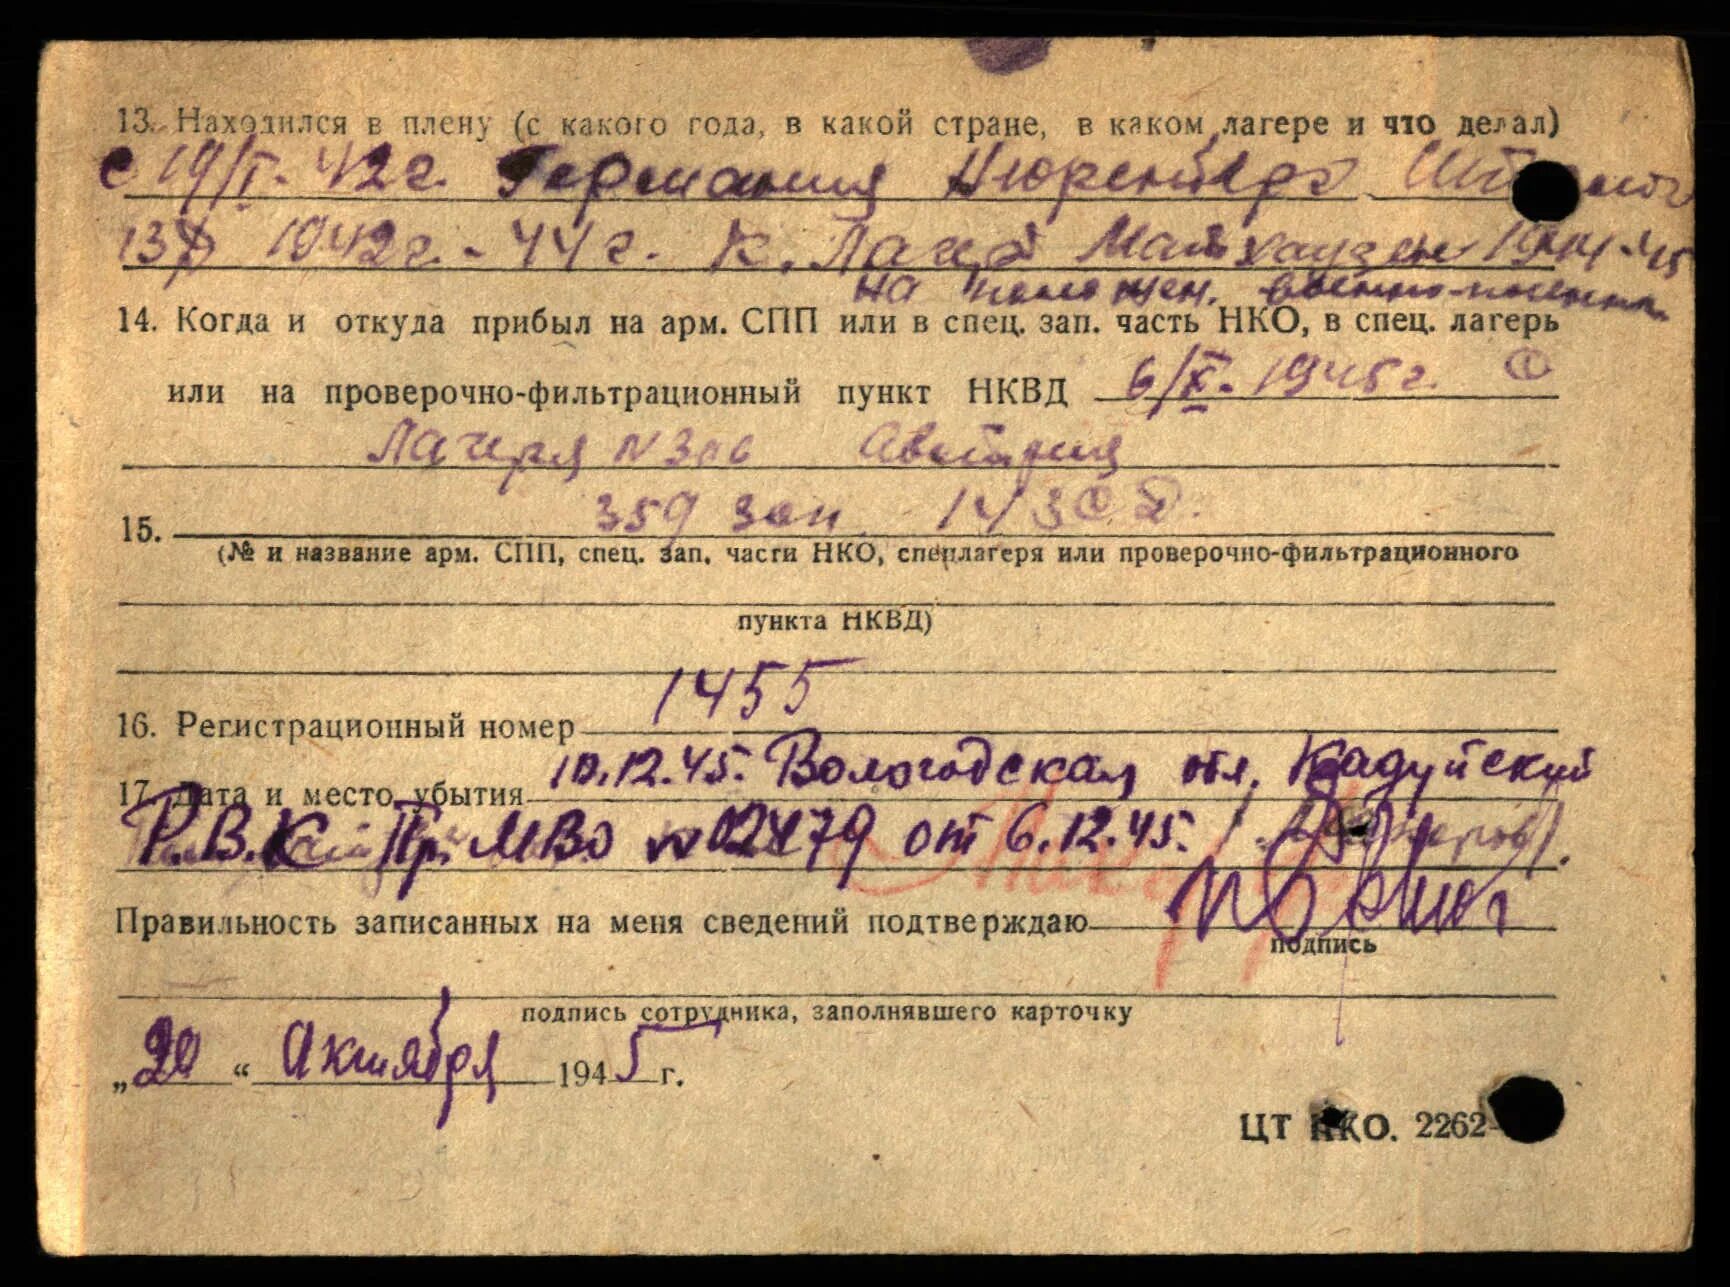 13. Находился в плену (с какого года, в какой стране, в каком лагере и что делал)
с 19/I-42г. Германия Нюренберг
1942г. - 44г. К. Лагер Маутхаузен 1944-45
на полож. военно-пленн.
14. Когда и откуда прибыл на арм. СПП или в спец. зап. часть НКО, в спец. лагерь
или на проверочно-фильтрационный пункт НКВД 6/X-1945г. С
Лагеря N 306 Австрия
15. 359 зап
(№ и название арм. СПП, спец. зап. части НКО, спецлагеря или проверочно-фильтрационного
пункта НКВД)
16. Регистрационный номер 1455
17. Дата и место убытия 10.12.45. Вологодская обл. Кадуйский
Р.В.К. Пр. МВО N 02479 от 6.12.45.
Правильность записанных на меня сведений подтверждаю
подпись
подпись сотрудника, заполнявшего карточку
„20“ Октября 1945 г.
ЦТ НКО. 2262-